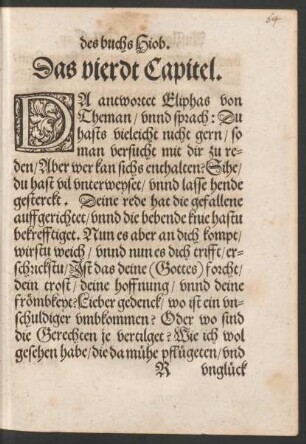 64
des buchs Hiob.
Das vierdt Capitel.
DA antwortet Eliphas von
Theman / vnnd sprach: Du
hasts vieleicht nicht gern / so
man versucht mit dir zu re-
den / Aber wer kan sichs enthalten? Sihe/
du hast vil vnterweyset / vnnd lasse hende
gesterckt. Deine rede hat die gefallene
auffgerichtet / vnnd die bebende knie hastu
bekrefftiget. Nun es aber an dich kompt/
wirstu weich / vnnd nun es dich trifft / er-
schrickstu / Ist das deine (Gottes) forcht/
dein trost / deine hoffnung / vnnd deine
frömbkeyt? Lieber gedenck / wo ist ein vn-
schuldiger vmbkommen? Oder wo sind
die Gerechten je vertilget? Wie ich wol
gesehen habe / die da mühe pflügeten / vnd
R vnglück